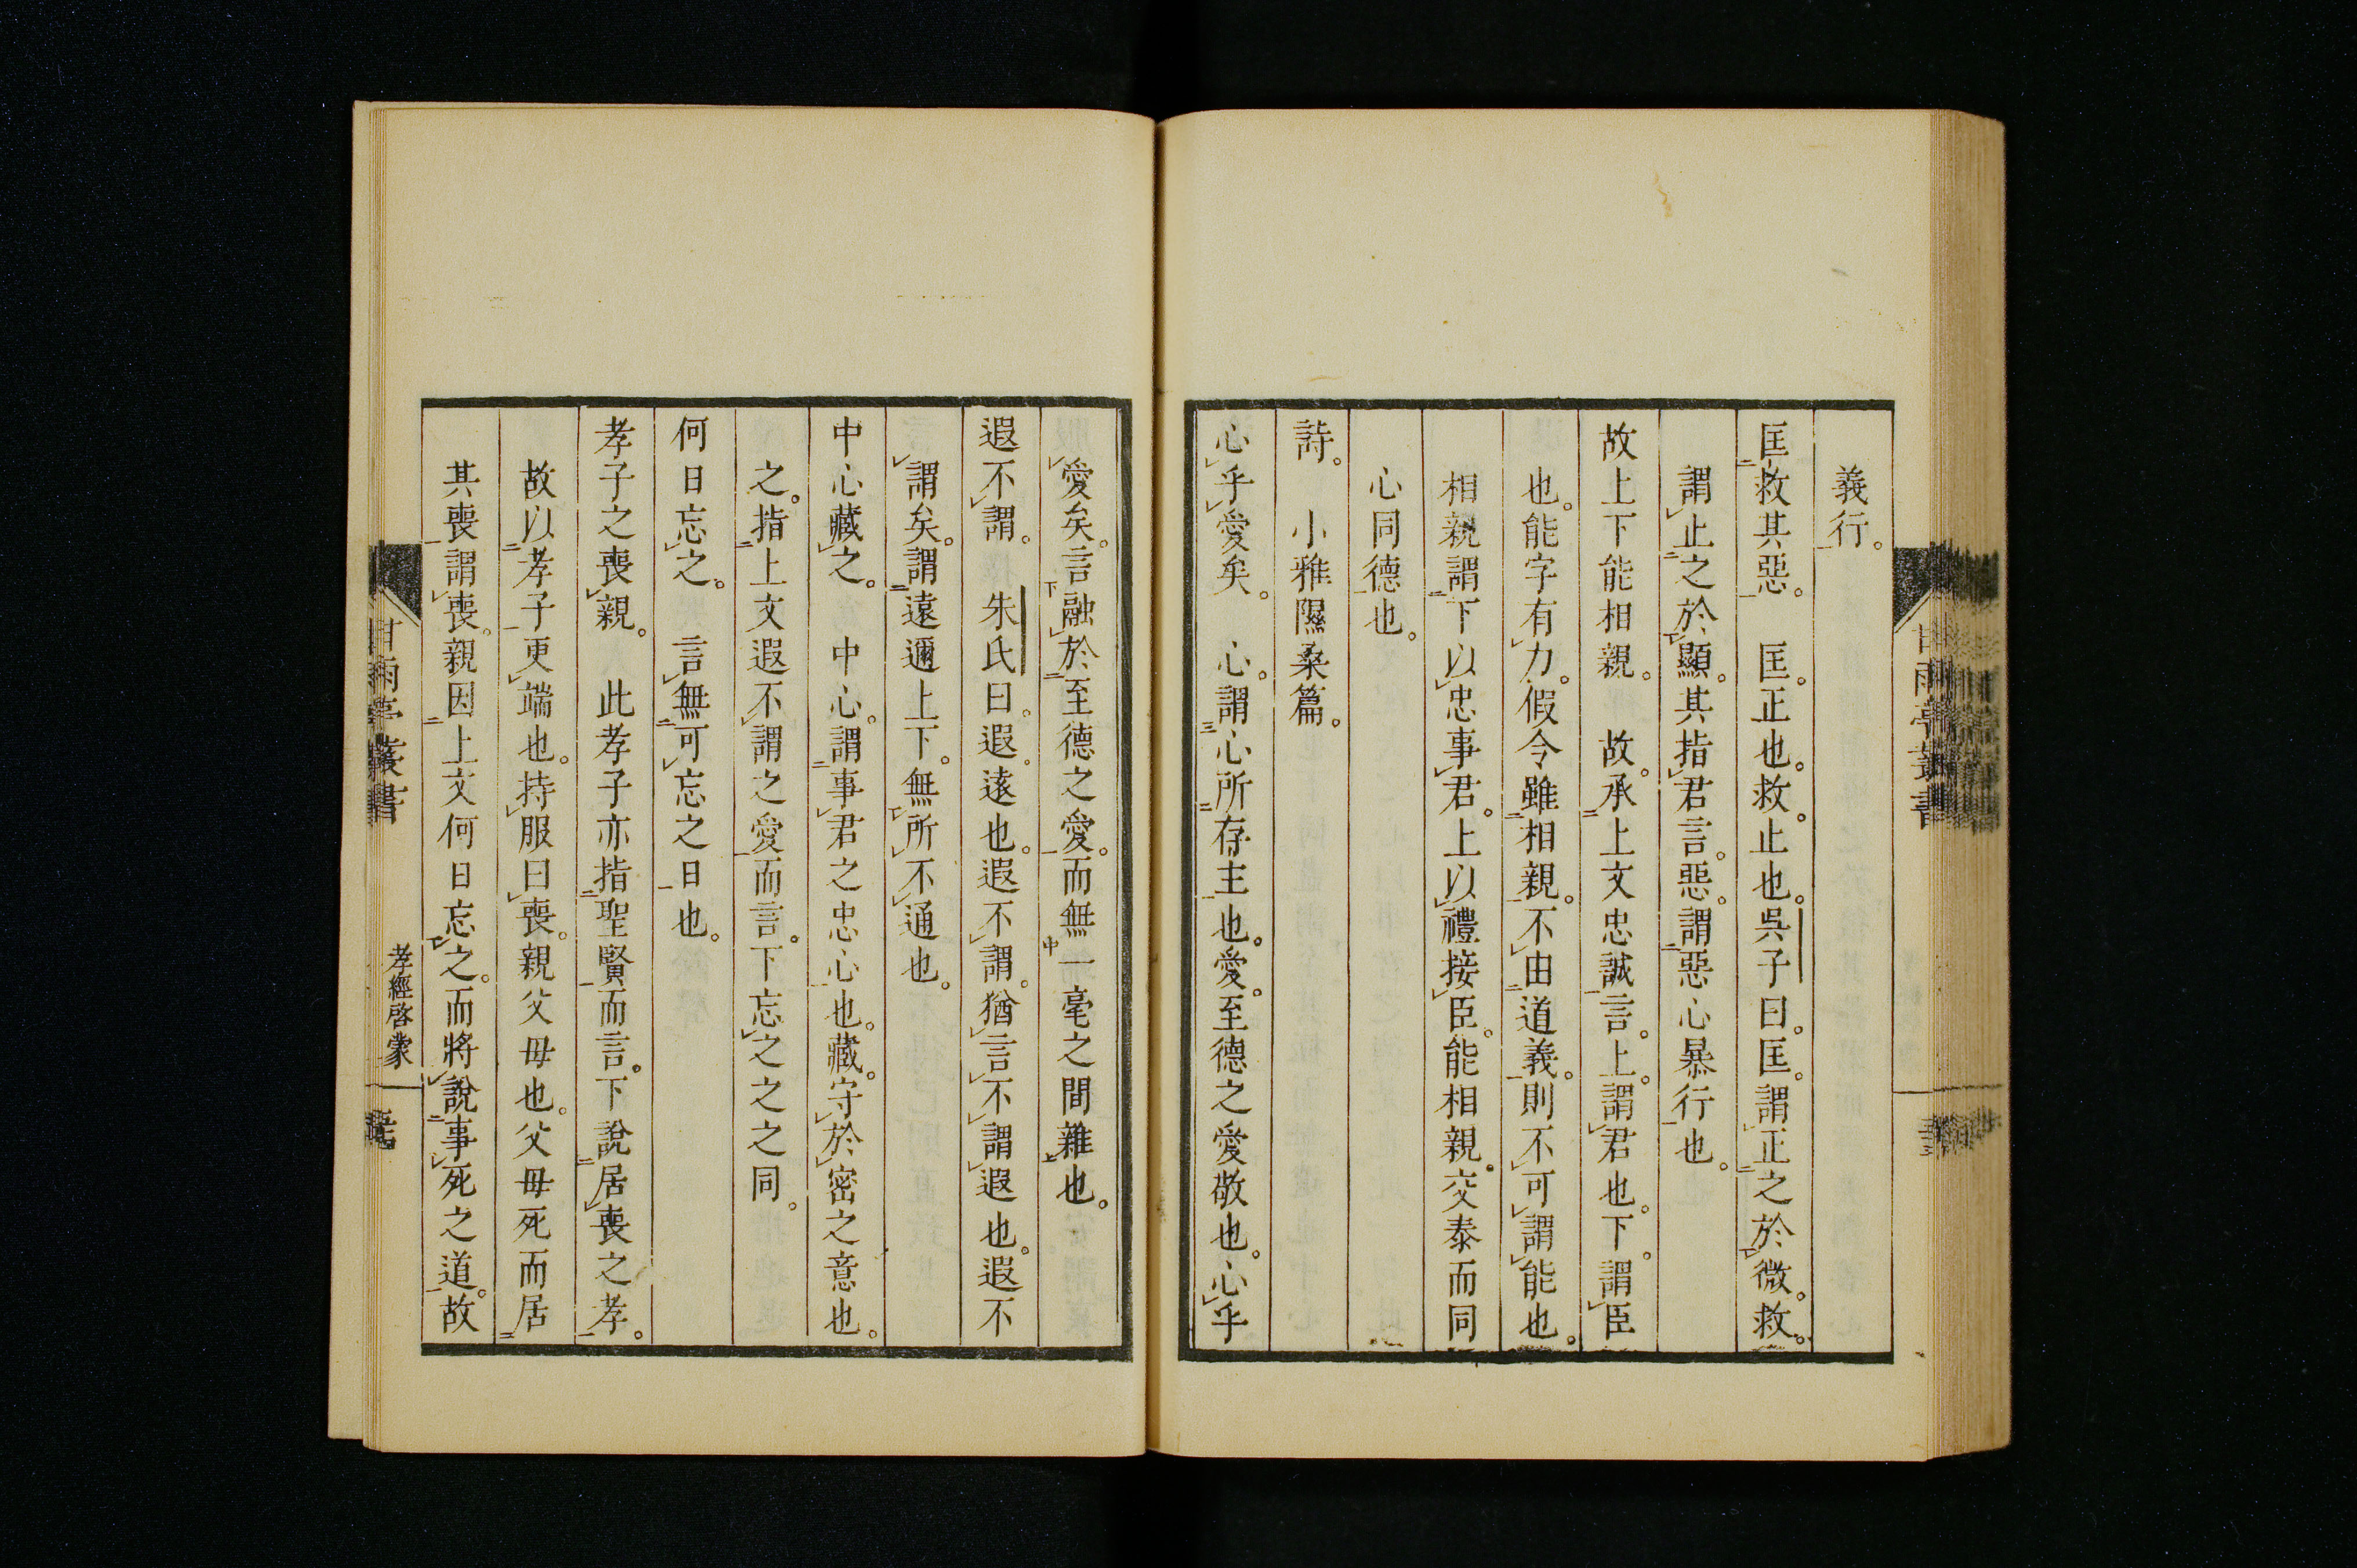 義行。
匡救其惡。　匡。正也。救。止也。吳子曰。匡。謂正之於微。救。
謂止之於顯。其指君言。惡。謂惡心暴行也。
故上下能相親。　故。承上文忠誠言。上。謂君也。下。謂臣
也。能字有力。假令雖相親。不由道義。則不可謂能也。
相親謂下以忠事君。上以禮接臣。能相親。交泰而同
心同德也。
詩。　小雅隰桑篇。
心乎愛矣。　心。謂心所存主也。愛。至德之愛敬也。心乎
愛矣。言融於至德之愛。而無一毫之間雜也。
遐不謂。　朱氏曰。遐。遠也。遐不謂。猶言不謂遐也。遐不
謂矣。謂遠邇上下。無所不通也。
中心藏之。　中心。謂事君之忠心也。藏。守於密之意也。
之。指上文遐不謂之愛而言。下忘之之之同。
何日忘之。　言無可忘之日也。
孝子之喪親。　此孝子亦指聖賢而言。下說居喪之孝。
故以孝子更端也。持服曰喪。親父母也。父母死而居
其喪謂喪。親因上文何日忘之。而將說事死之道。故
甘雨亭叢書
孝經啓蒙
甘雨亭叢書